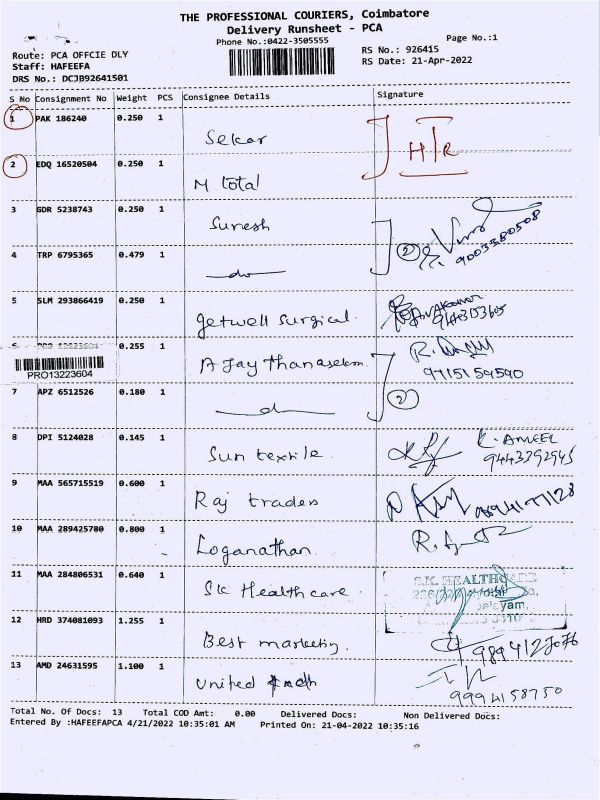 THE PROFESSIONAL COURIERS, Coimbatore
Delivery Runsheet - PCA
Phone No.:0422-3505555
Page No.:1
Route: PCA OFFCIE DLY
Staff: HAFEEFA
DRS No.: DCJB92641501
RS No.: 926415
RS Date: 21-Apr-2022
S No Consignment No Weight PCS Consignee Details Signature
1 PAK 186240 0.250 1 Sekar HTR
2 EDQ 16520504 0.250 1 M total
3 GDR 5238743 0.250 1 Suresh 9003580508
4 TRP 6795365 0.479 1 do (2)
5 SLM 293866419 0.250 1 getwell surgical.
6 0.255 1 Ajay thanasekm
PRO13223604
9715159590
7 APZ 6512526 0.180 1 do (2)
8 DPI 5124028 0.145 1 Sun textile K. AMEEL
9443392945
9 MAA 565715519 0.600 1 Raj traders
10 MAA 289425780 0.800 1 Loganathan
11 MAA 284806531 0.640 1 SK Health care S.K. HEALTHCARE
12 HRD 374081093 1.255 1 Best marketing.
13 AMD 24631595 1.100 1 United
9994158750
Total No. Of Docs: 13 Total COD Amt: 0.00 Delivered Docs: Non Delivered Docs:
Entered By :HAFEEFAPCA 4/21/2022 10:35:01 AM Printed On: 21-04-2022 10:35:16